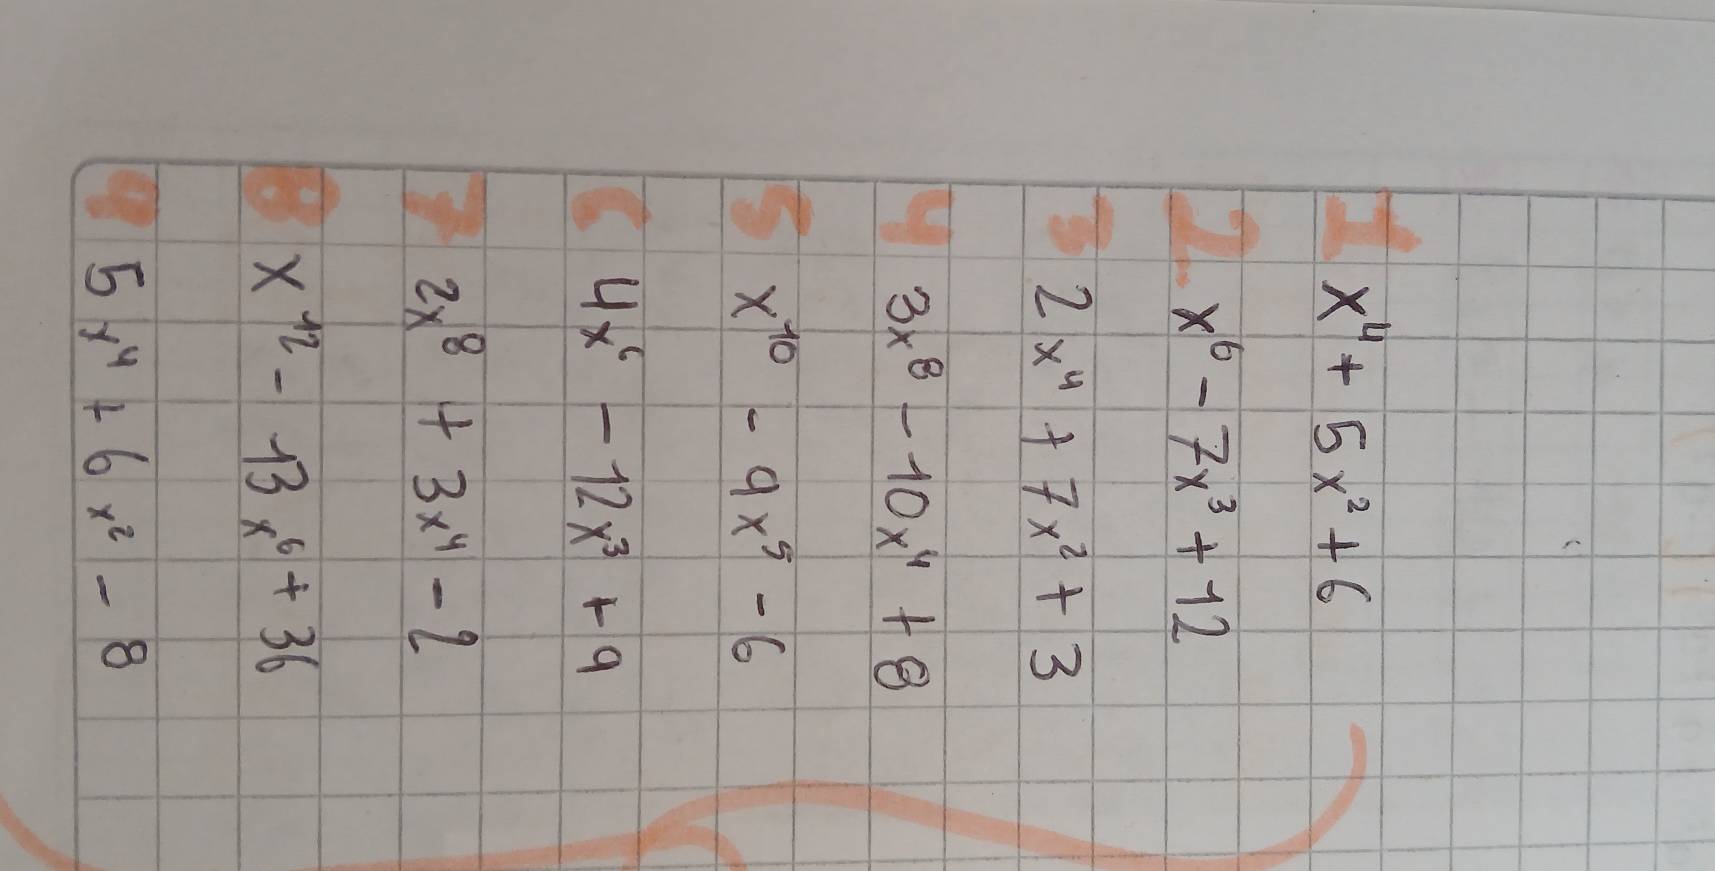 1 x⁴ + 5x² + 6
2. x⁶ - 7x³ + 12
3 2x⁴ + 7x² + 3
4 3x⁸ - 10x⁴ + 8
5 x¹⁰ - 9x⁵ - 6
6 4x⁶ - 12x³ + 9
7 2x⁸ + 3x⁴ - 2
8 x¹² - 13x⁶ + 36
9 5x⁴ + 6x² - 8